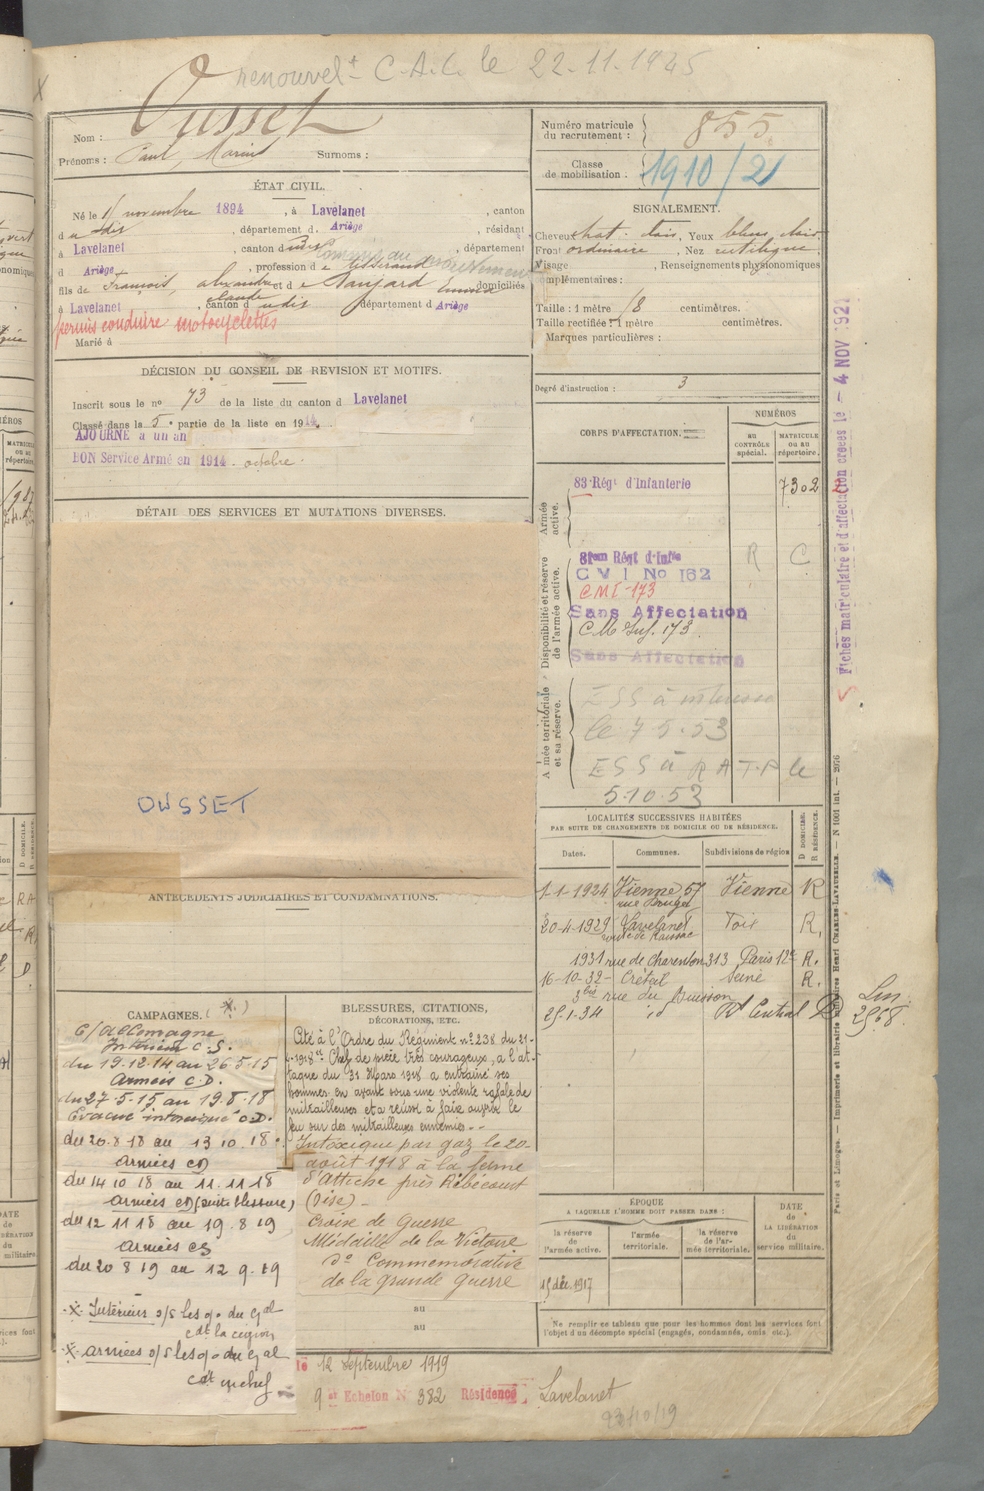 renouvelt C.A.C. le 22-11-1945
Nom : Ousset
Prénoms : Paul, Marius Surnoms :
Numéro matricule du recrutement : 855
Classe de mobilisation : 1910/21
ÉTAT CIVIL.
Né le novembre 1894, à Lavelanet, canton
d u dis, département d Ariège, résidant
à Lavelanet, canton d udis, département
d Ariège, profession de tisserand
fils de François, Alexandre et d e domiciliés
claude
à Lavelanet canton d udis département d Ariège
permis conduire motocyclettes
Marié à
SIGNALEMENT.
Cheveux chat. clais, Yeux bleus clairs
Front ordinaire, Nez rectiligne
Visage , Renseignements physionomiques
complémentaires :
Taille : 1 mètre centimètres.
Taille rectifiée : 1 mètre centimètres.
Marques particulières :
Degré d'instruction : 3
DÉCISION DU CONSEIL DE REVISION ET MOTIFS.
Inscrit sous le no 73 de la liste du canton d Lavelanet
Classé dans la 5e partie de la liste en 1914.
AJOURNE à un an
BON Service Armé en 1914. octobre.
DÉTAIL DES SERVICES ET MUTATIONS DIVERSES.
OUSSET
CORPS D'AFFECTATION.
NUMÉROS
AU CONTRÔLE spécial.
MATRICULE ou au répertoire.
Armée active.
83e Régt d'Infanterie 7302
Disponibilité et réserve de l'armée active.
81em Régt d'Infie R C
C V I No 162
CMI-173
Sans Affectation
C.M. Inf. 173.
Sans Affectation
Armée territoriale et sa réserve.
ESS à
le 7 5.53
ESS à R A T P le
5.10.53
Fiches matriculaire et d'affectation créées le - 4 NOV 1921
LOCALITÉS SUCCESSIVES HABITÉES
PAR SUITE DE CHANGEMENTS DE DOMICILE OU DE RÉSIDENCE.
Dates. Communes. Subdivisions de région D DOMICILE. R RÉSIDENCE.
1-1-1924 Vienne 57 Vienne R
20-4-1929 Lavelanet Foix R.
1931 rue de Charenton 313 Paris 12e R.
16-10-32- Créteil Seine R.
3bis rue du Buisson
25-1-34 id Rt Central D
ANTÉCÉDENTS JUDICIAIRES ET CONDAMNATIONS.
CAMPAGNES. (*)
C/Allemagne
Intérieur C.S.
du 19.12.14 au 26.5.15
Armées C.D.
du 27.5.15 au 19.8.18
Evacué intoxiqué C.D.
du 20.8.18 au 13 10.18.
armées CD
du 14 10 18 au 11.11.18
armées CD (suite blessure)
du 12 11 18 au 19.8.19
armées CS
du 20 8 19 au 12 9.19
* Intérieurs s/s les o. du Gal
cdt la région
* armées s/s les o. du Gal
cdt en chef
BLESSURES, CITATIONS,
DÉCORATIONS, ETC.
Cité à l'Ordre du Régiment no 238 du 21-
4-1918 "Chef de pièce très courageux, a l'at-
taque du 31 Mars 1918 a entraîné ses
hommes en avant sous une violente rafale de
mitrailleuses et a réussi à faire le
feu sur des mitrailleuses ennemies.-
Intoxiqué par gaz le 20-
août 1918 à la ferme
d'Attiche près Ribécourt
(Oise)-
Croix de Guerre
Médaille de la Victoire
do Commémorative
de la grande Guerre
au
au
ÉPOQUE
A LAQUELLE L'HOMME DOIT PASSER DANS :
la réserve de l'armée active. l'armée territoriale. la réserve de l'armée territoriale.
DATE de LA LIBÉRATION du service militaire.
15 déc. 1917
Ne remplir ce tableau que pour les hommes dont les services font
l'objet d'un décompte spécial (engagés, condamnés, omis etc.).
le 12 Septembre 1919
9 Echelon No 382 Résidence Lavelanet
23/10/19
Paris et Limoges. — Imprimerie et librairie militaires Henri CHARLES-LAVAUZELLE. — N 1001 Int. — 2076